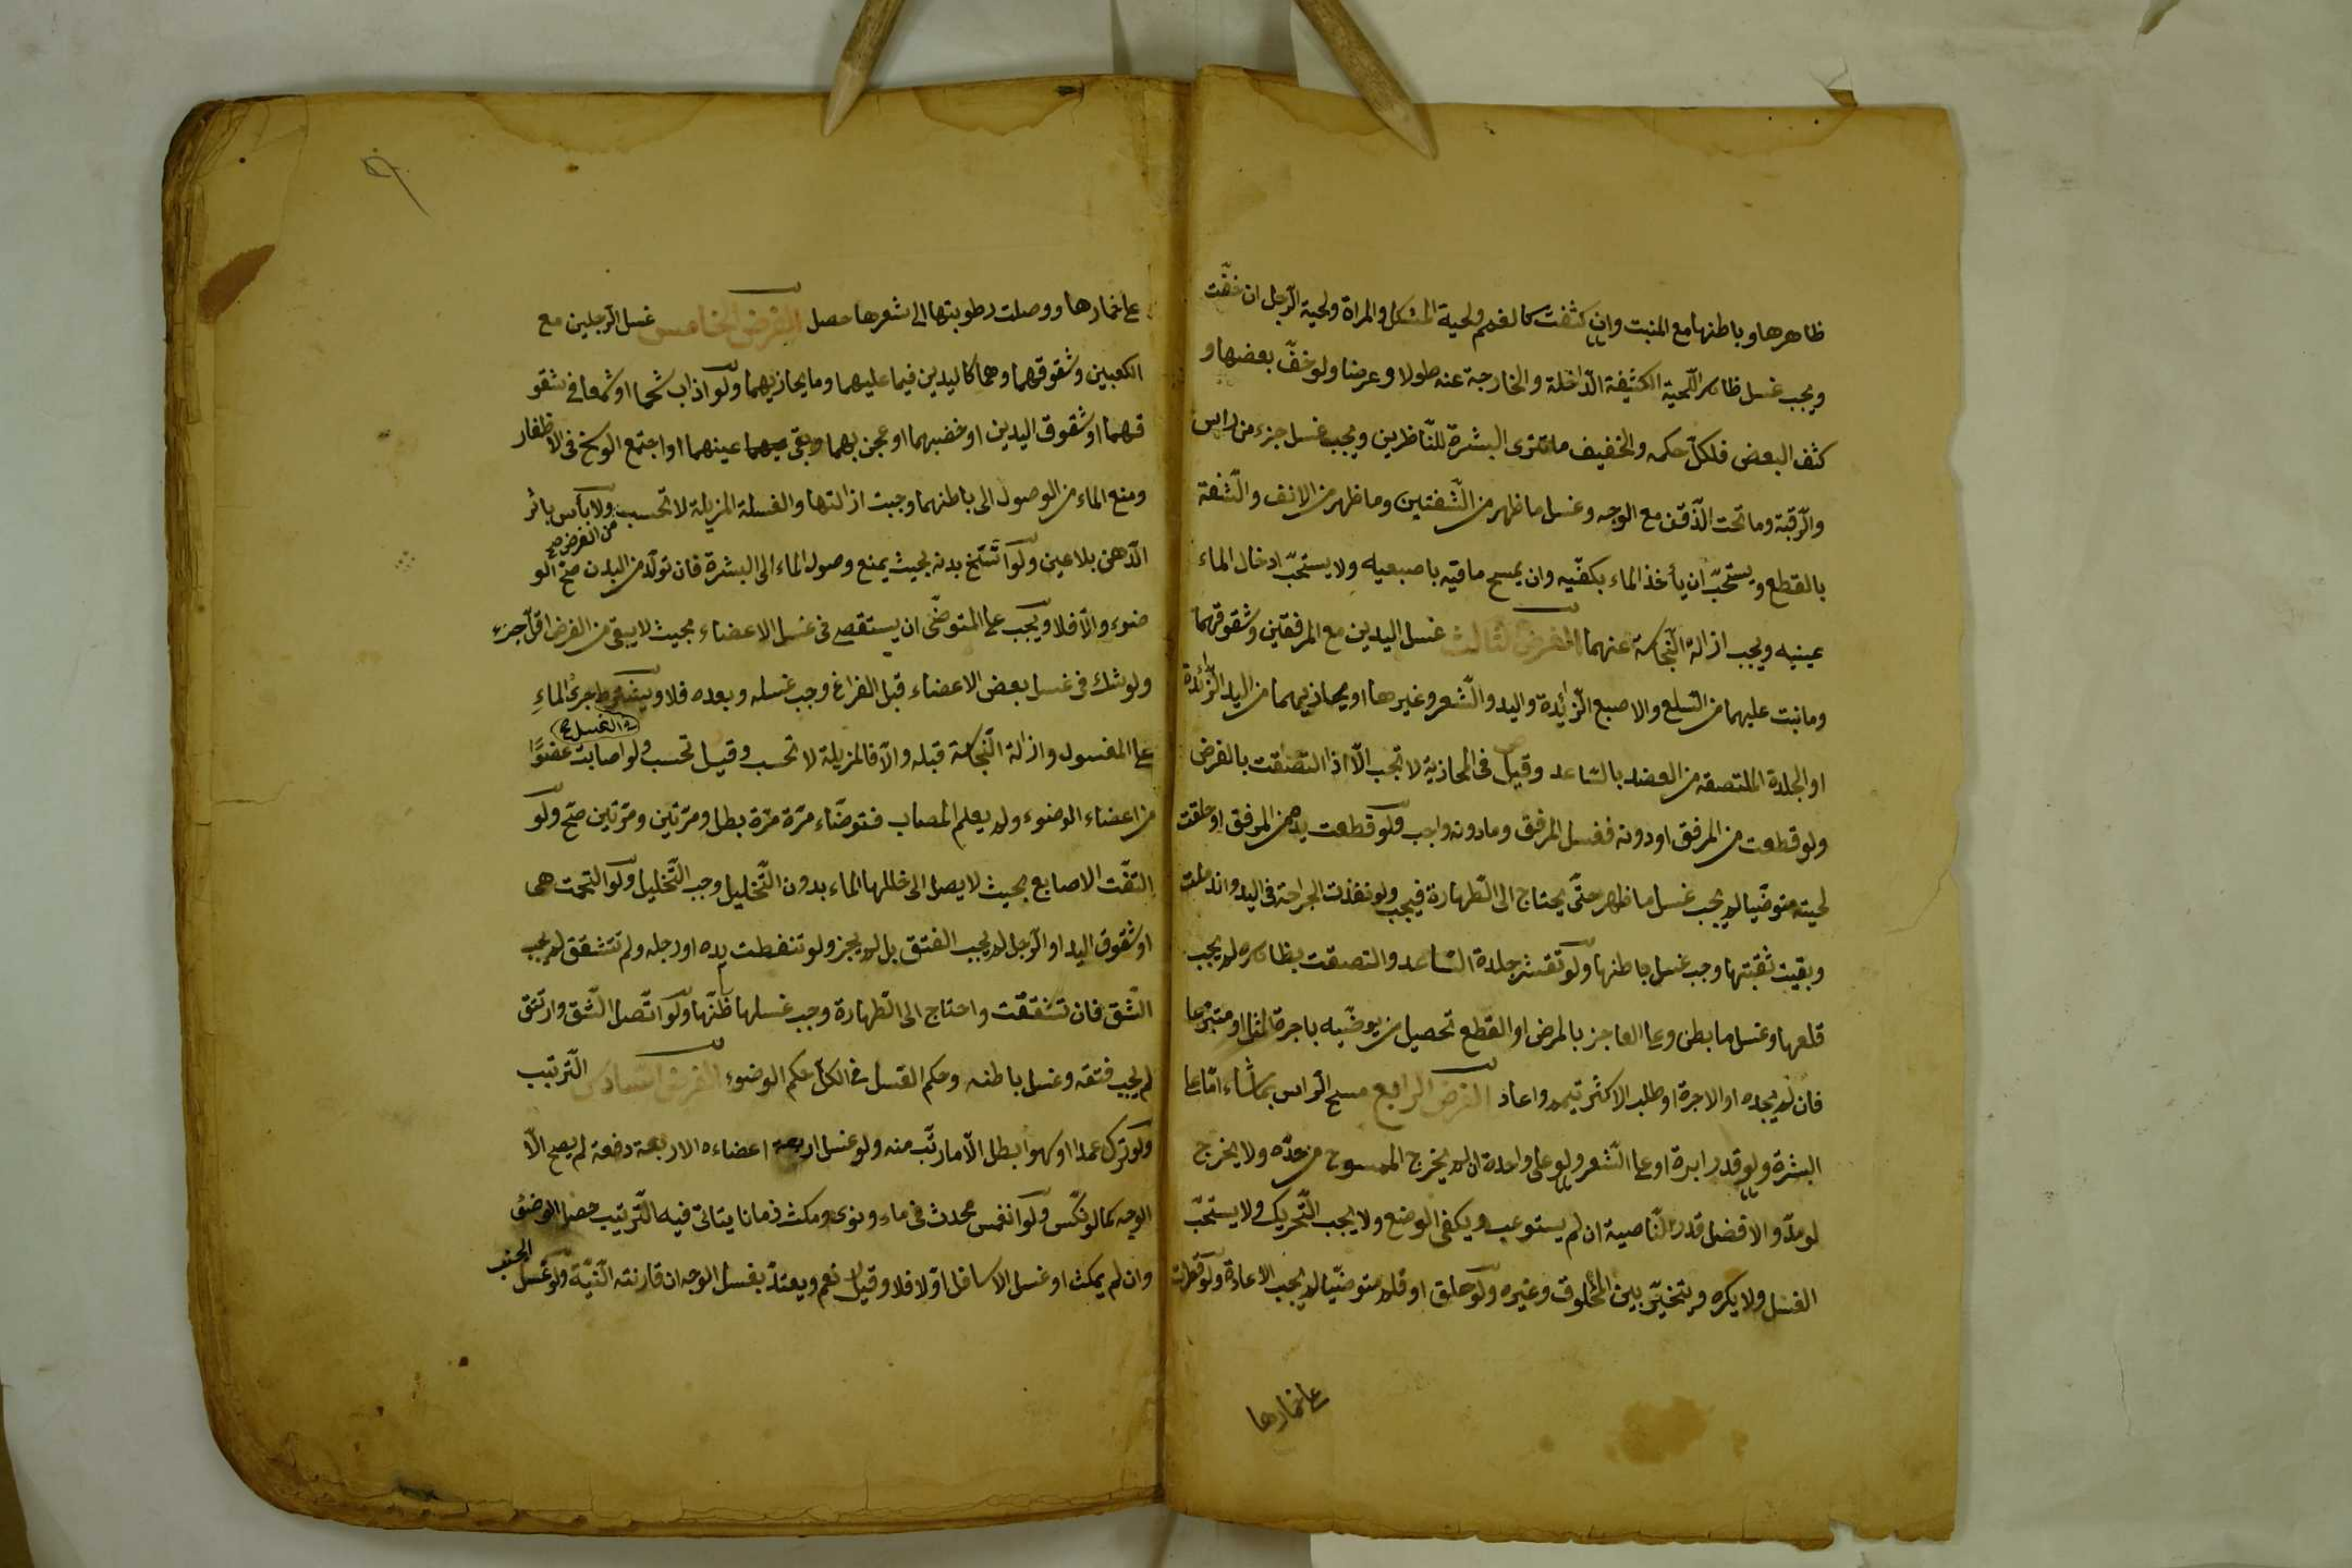 ظاهرها وباطنها مع المنبت وان كثفت كالغمم ولحية المشكل والمراة ولحية الرّجل ان خفّت
ويجب غسل ظاهر اللّحية الكثيفة الدّاخلة والخارجة عنه طولا وعرضا ولو خفّ بعضها و
كثف البعض فلكلّ حكمه والخفيف ما تترى البشرة للنّاظرين ويجب غسل جزء من راس
والرّقبة وما تحت الذّقن مع الوجه وغسل ما ظهر من الشّفتين وما ظهر من الانف والشّفة
بالقطع ويستحبّ ان يأخذ الماء بكفّيه وان يمسح ماقيه باصبعيه ولا يستحبّ ادخال الماء
عينيه ويجب ازالة النّجاسة عنهما الفرض الثالث غسل اليدين مع المرفقين وشقوقهما
وما نبت عليهما من السّلع والاصبع الزّائدة واليد والشّعر وغيرها او يحاذيهما من اليد الزّائدة
او الجلدة الملتصقة من العضد بالسّاعد وقيل فى المحاذية لا تجب الّا اذا التصقت بالفرض
ولو قطعت من المرفق او دونه فغسل المرفق وما دونه واجب ولو قطعت يده من المرفق او حلقت
لحيته متوضّيا لم يجب غسل ما ظهر حتّى يحتاج الى الطّهارة فيجب ولو نفذت الجراحة فى اليد واندملت
وبقيت ثقبتها وجب غسل باطنها ولو تقشّر جلدة السّاعد والتصقت بظاهره لم يجب
قلعها وغسل ما بطن وعلى العاجز بالمرض او القطع تحصيل من يوضّيه باجرة المثل او متبرّعا
فان لم يجده او الاجرة او طلب الاكثر تيمم واعاد الفرض الرابع مسح الرّاس بما شاء امّا على
البشرة ولو قدر ابرة او على الشّعر ولو على واحدة ان لم يخرج الممسوح من حدّه ولا يخرج
لو مدّ والافضل قدر النّاصية ان لم يستوعب ويكفى الوضع ولا يجب التّحريك ولا يستحبّ
الغسل ولا يكره ويتخيّر بين المحلوق وغيره ولو حلق او قلم متوضّيا لم يجب الاعادة ولو قطرت
على خمارها
على خمارها ووصلت رطوبتها الى شعرها حصل الفرض الخامس غسل الرّجلين مع
الكعبين وشقوقهما وهما كاليدين فيما عليهما وما يحاذيهما ولو اذاب شحما او شمعا في شقو
قهما او شقوق اليدين او خضبهما او عجن بهما وبقى عينهما او اجتمع الوسخ فى الاظفار
ومنع الماء من الوصول الى باطنهما وجبت ازالتها والغسلة المزيلة لا تحسب من الفرض صح ولا بأس باثر
الدّهن بلا عين ولو اتّسخ بدنه بحيث يمنع وصول الماء الى البشرة فان تولّد من البدن صحّ الو
ضوء والّا فلا ويجب على المتوضّى ان يستقصى فى غسل الاعضاء بحيث لا يبقى من الفرض اقلّ جزء
ولو شك فى غسل بعض الاعضاء قبل الفراغ وجب غسله وبعده فلا ويشترط فى الغسل صح جرىُ الماءِ
على المغسول وازالة النّجاسة قبله والّا فالمزيلة لا تحسب وقيل تحسب ولو اصابت عضوًا
من اعضاء الوضوء ولم يعلم المصاب فتوضّاء مرّة مرّة بطل ومرّتين ومرّتين صحّ ولو
التفّت الاصابع بحيث لا يصل الى خللها الماء بدون التّخليل وجب التّخليل ولو التحمت هى
او شقوق اليد او الرّجل لم يجب الفتق بل لم يجز ولو تنفطت يده او رجله ولم تتشقق لم يجب
الشّق فان تشقّقت واحتاج الى الطّهارة وجب غسلها ظنّها ولو اتّصل الشّق وارتتق
لم يجب فتقه وغسل باطنه وحكم الغسل فى الكلّ حكم الوضوء الفرض السّادس التّرتيب
ولو ترك عمدا او سهوا بطل الّا ما رتّب منه ولو غسل اربعة اعضاءه الاربعة دفعة لم يصح الّا
الوجه كما لو نكّس ولو انغمس محدث فى ماء ونوى ومكث زمانا يتاتّى فيه التّرتيب حصل الوضوء
وان لم يمكث او غسل الاسافل اوّلا فلا وقيل نعم ويعتدّ بغسل الوجه ان قارنته النّيّة ولو غسل الجنب